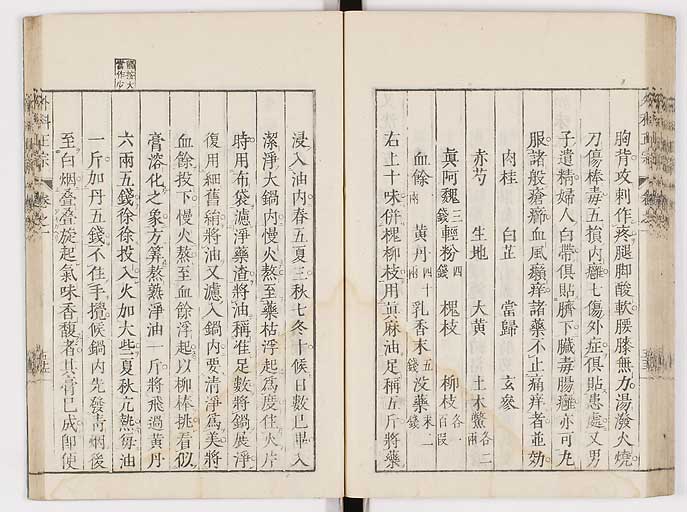 胸背攻刺作疼腿脚酸軟腰膝無力湯潑火燒
刀傷棒毒五損內癰七傷外症俱貼患處又男
子遺精婦人白帶俱貼臍下臟毒腸癰亦可丸
服諸般瘡癤血風癩痒諸藥不止痛痒者並効
肉桂 白芷 當歸 玄參
赤芍 生地 大黃 土木鱉各二兩
真阿魏三錢 輕粉四錢 槐枝 柳枝各一百段
血餘一兩 黃丹四十兩 乳香末五錢 没藥末二錢
右上十味併槐柳枝用真麻油足稱五斤將藥
浸入油內春五夏三秋七冬十候日數已畢入
潔淨大鍋內慢火熬至藥枯浮起為度住火片
時用布袋濾淨藥渣將油稱准足數將鍋展淨
復用細舊絹將油又濾入鍋內要清淨為美將
血餘投下慢火熬至血餘浮起以柳棒挑看似
膏溶化之象方筭熬熟淨油一斤將飛過黃丹
六兩五錢徐徐投入火加大些夏秋亢熱每油
一斤加丹五錢不住手攪候鍋內先發青烟後
至白烟叠叠旋起氣味香馥者其膏已成即便
外科正宗
卷之二